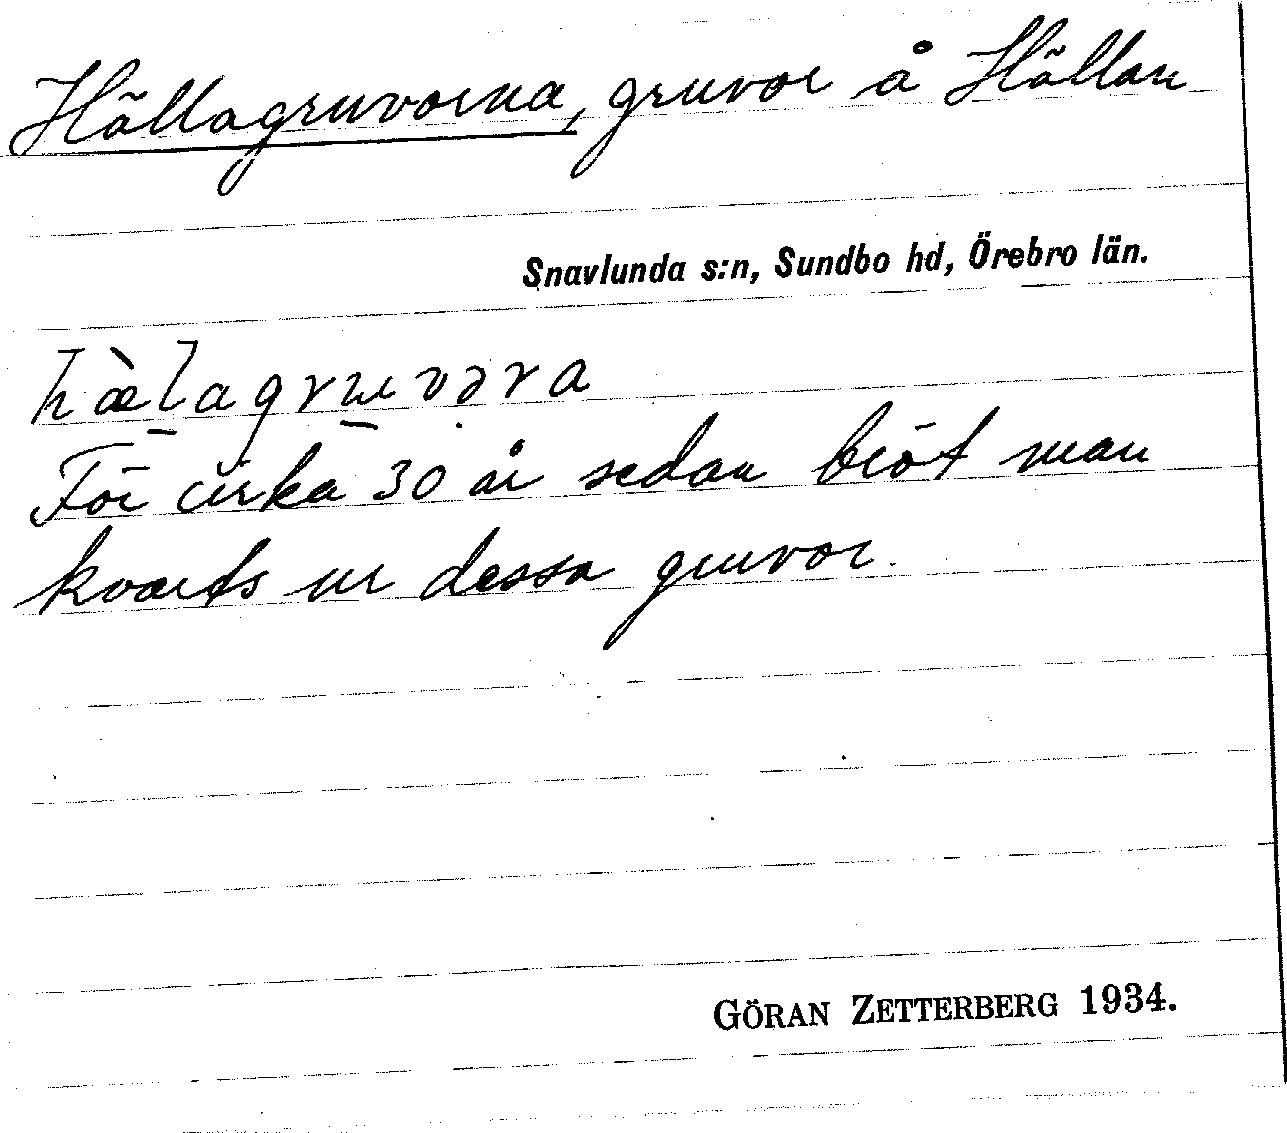 Hällagruvorna, gruvor å Hällan
Snavlunda s:n, Sundbo hd, Örebro län.
hæ̀lagruvəra
För cirka 30 år sedan bröt man
kvarts ur dessa gruvor.
GÖRAN ZETTERBERG 1934.